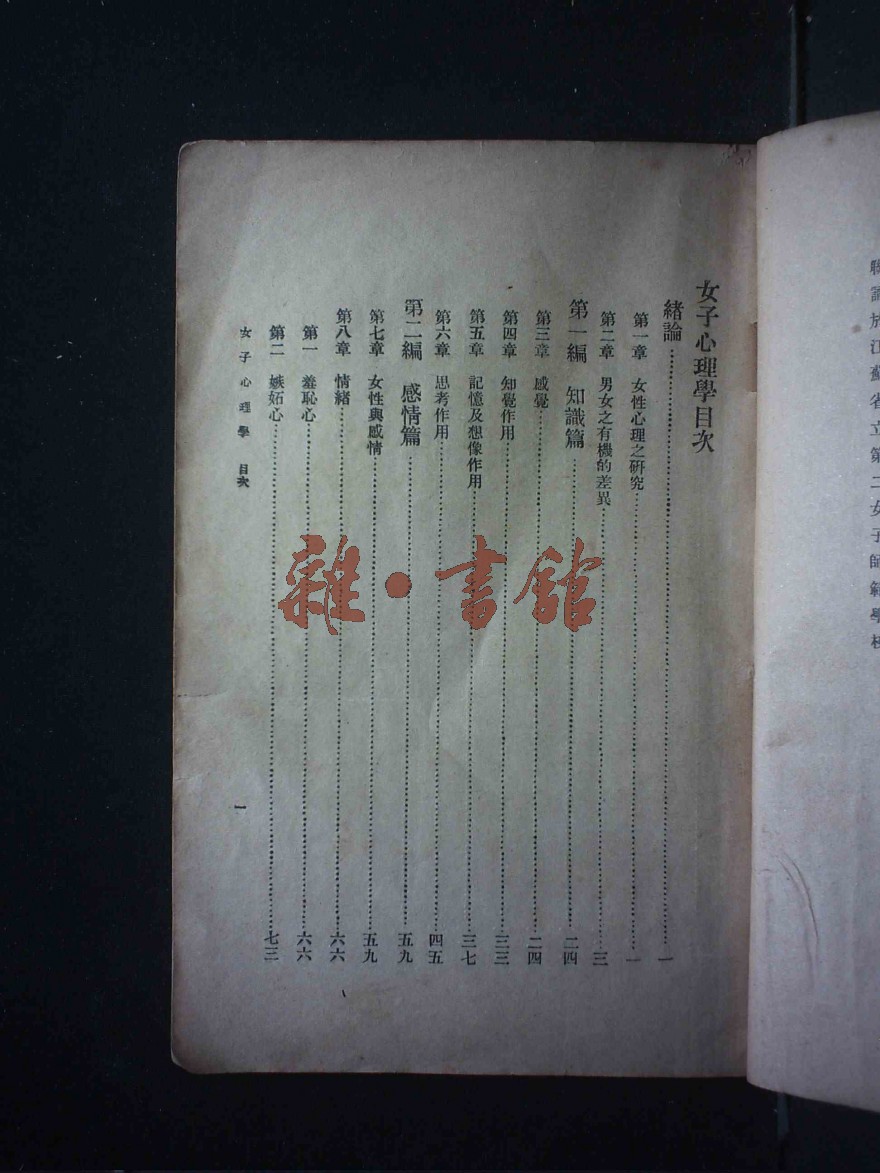 聯誦於江蘇省立第二女子師範學校
女子心理學目次
緒論……一
第一章 女性心理之硏究……一
第二章 男女之有機的差異……三
第一編 知識篇……二四
第三章 感覺……二四
第四章 知覺作用……三三
第五章 記憶及想像作用……三七
第六章 思考作用……四五
第二編 感情篇……五九
第七章 女性與感情……五九
第八章 情緒……六六
第一 羞恥心……六六
第二 嫉妬心……七三
女子心理學 目次
一
雜·書館